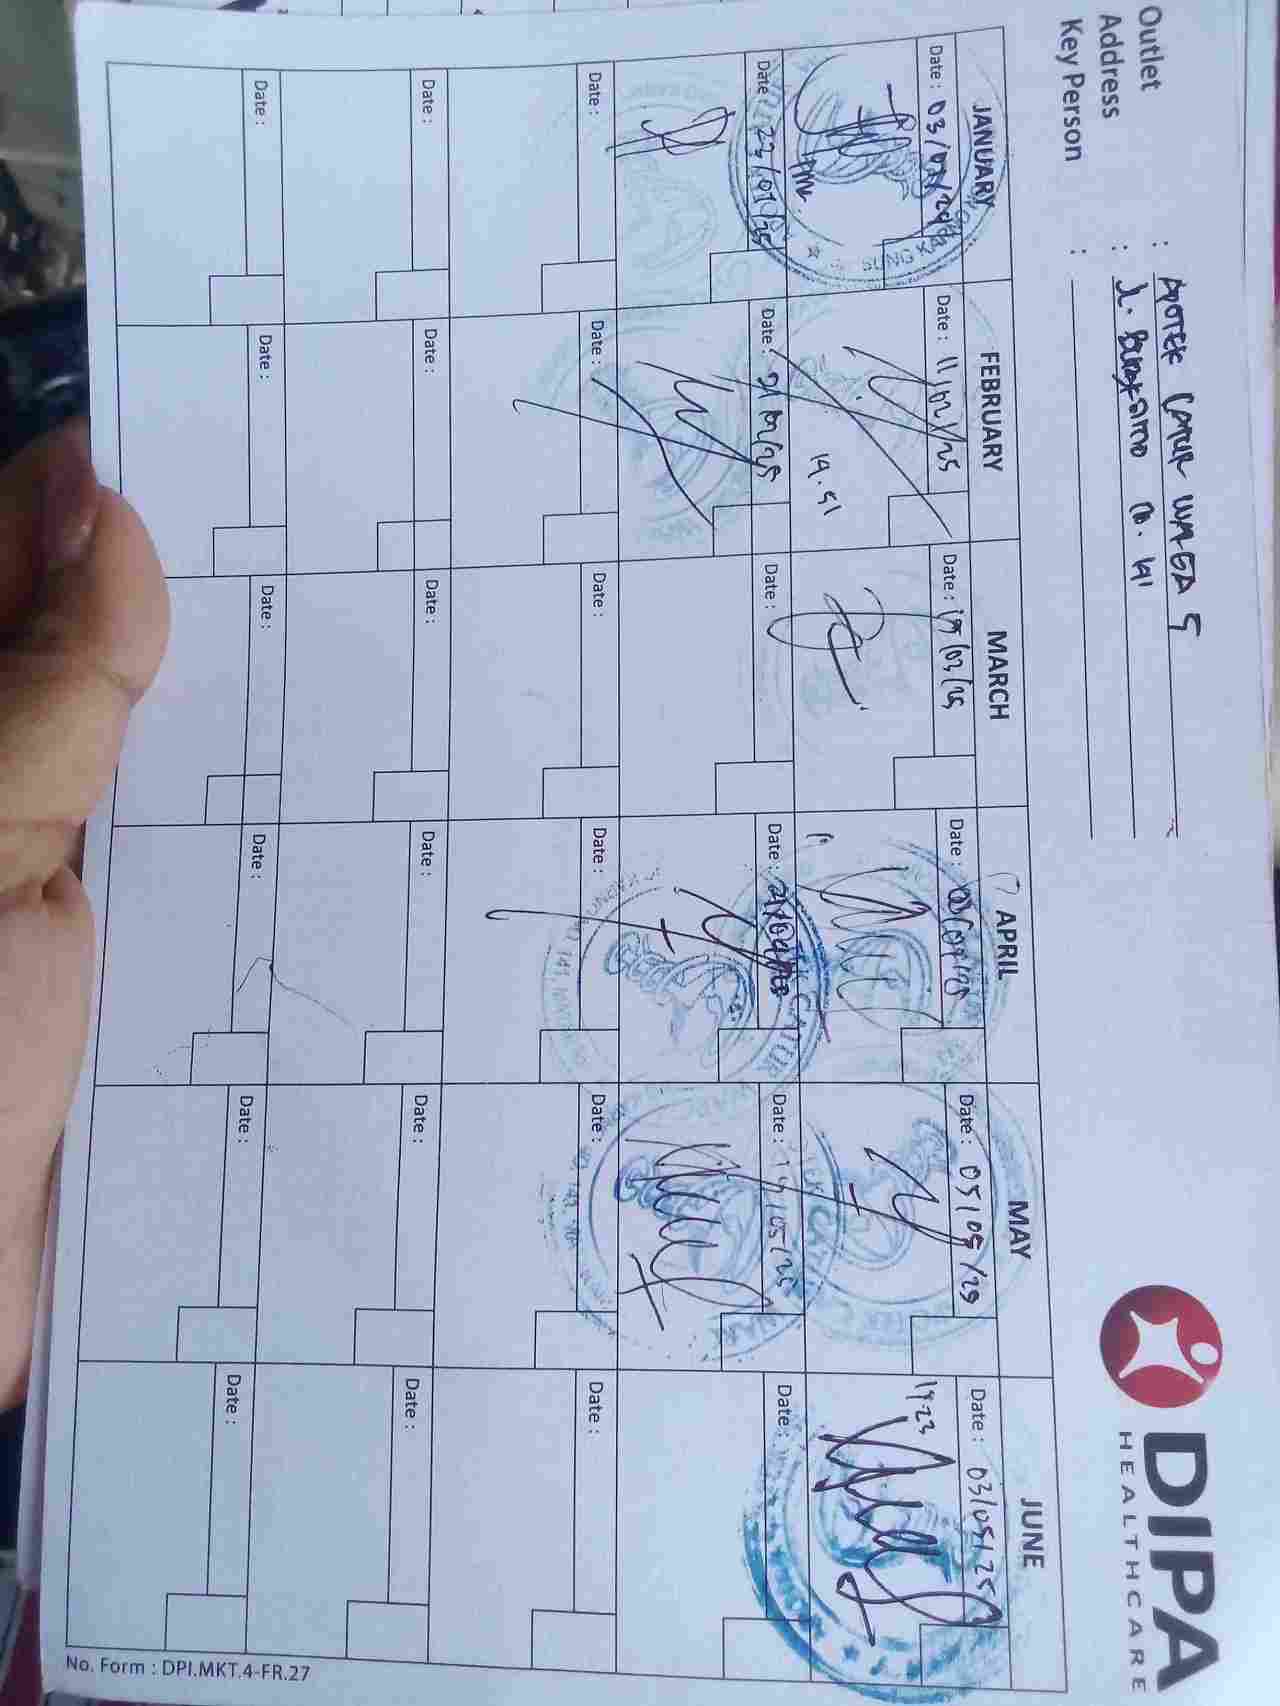 DIPA
HEALTHCARE
Outlet : APOTEK CATUR WARGA 5
Address : Jl. No. 141
Key Person :
JANUARY FEBRUARY MARCH APRIL MAY JUNE
Date : 03/ Date : 11/02/25 Date : 19/03/25 Date : /04/25 Date : 05/05/25 Date : 03/05/25
19.51 19.23
Date : 23/01/25 Date : 21/02/25 Date : Date : 21/04/25 Date : 19/05/25 Date :
Date : Date : Date : Date : Date : Date :
Date : Date : Date : Date : Date : Date :
Date : Date : Date : Date : Date : Date :
No. Form : DPI.MKT.4-FR.27